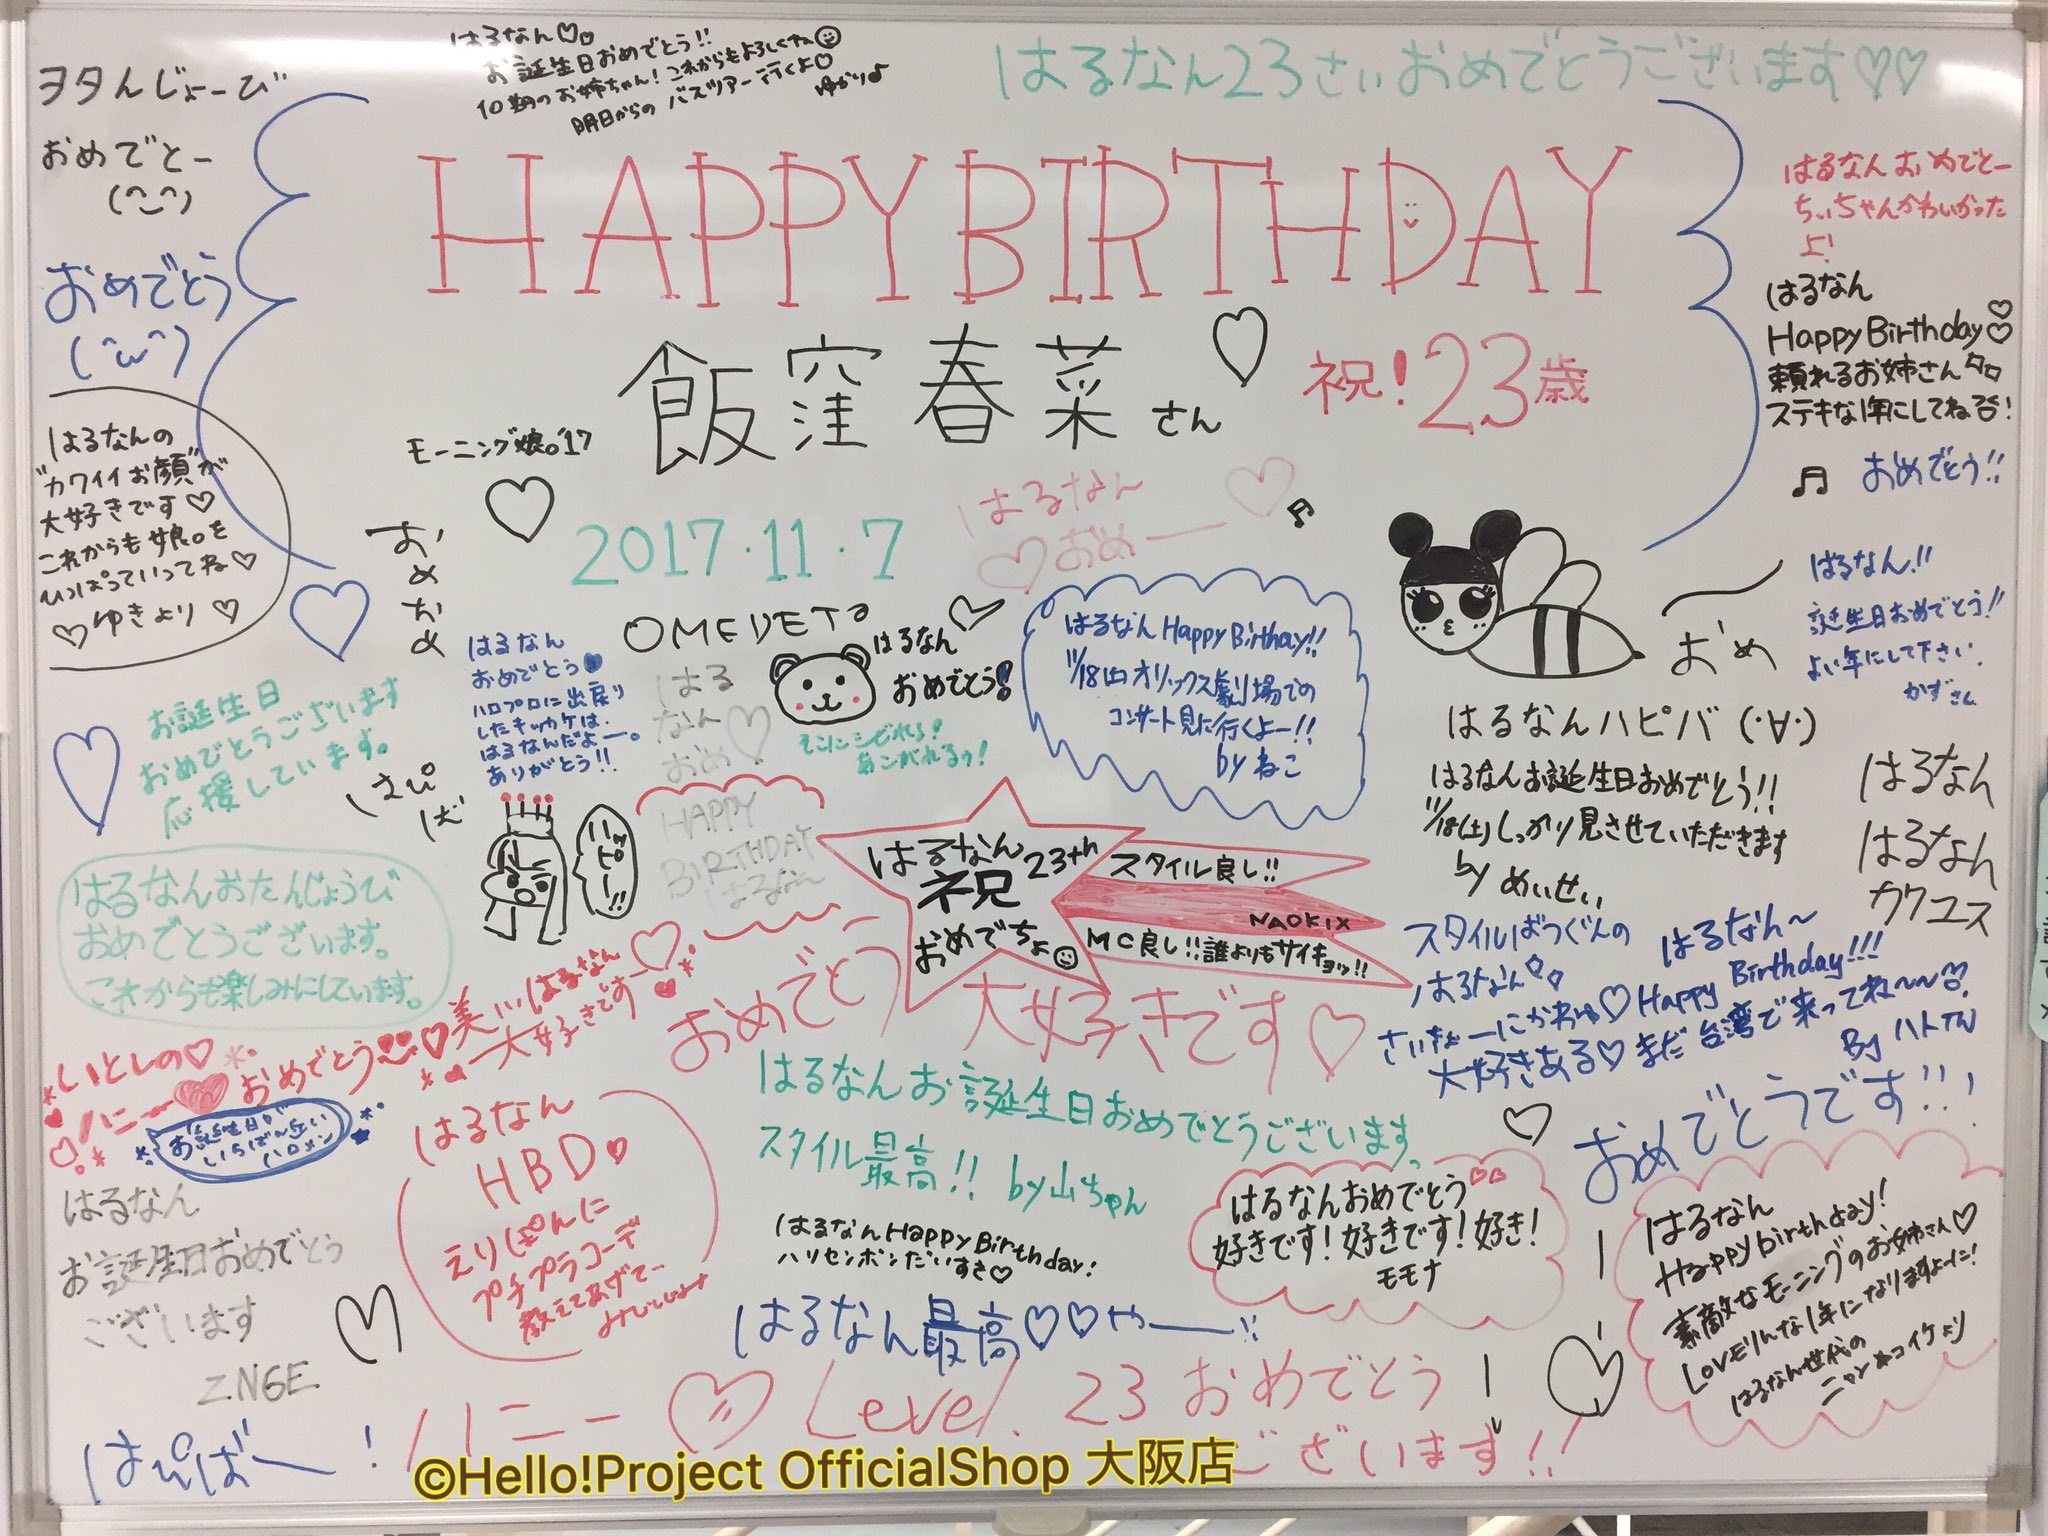 はるなん♡♡
お誕生日おめでとう!!
10期のお姉ちゃん!これからもよろしくね
明日からのバスツアー行くよ♡
ゆかりよ
はるなん23さいおめでとうございます♡♡
ヲタんじょーび
おめでとー
(^‿^)
おめでとう
(^ω^)
HAPPY BIRTHDAY
飯窪 春菜 さん ♡
祝!23歳
モーニング娘。'17
2017・11・7
はるなん ♡
♡おめー
はるなんおめでとー
ちぃちゃんかわいかった
よ!
はるなん
Happy Birthday♡♡
頼れるお姉さん
ステキな1年にしてね!
♫ おめでとう!!
はるなんの
"カワイイお顔"が
大好きです♡
これからも娘。を
ひっぱっていってね♡
♡ゆきより♡
おめおめ
OMEDETO
はるなん
おめでとう!
そこにシビれる!
あこがれるゥ!
はるなん
おめでとう♥
ハロプロに出戻り
したキッカケは、
はるなんだよー。
ありがとう!!
はる
なん♡
おめ
はるなん Happy Birthay!!
11/18(土)オリックス劇場での
コンサート見に行くよー!!
by ねこ
おめ
はるなん!!
誕生日おめでとう!!
よい年にして下さい.
かずさん
お誕生日
おめでとうございます
応援しています。
はるなんハピバ (・∀・)
はるなんお誕生日おめでとう!!
11/18(土)しっかり見させていただきます
by めいせい
はるなん
はるなん
カワユス
HAPPY
BIRTHDAY
はるなん
はるなん 23th
祝
おめでちょ
スタイル良し!!
NAOKIX
MC良し!!誰よりもサイキョッ!!
はるなんおたんじょうび
おめでとうございます。
これからも楽しみにしています。
スタイルばつぐんの
はるなん
大好きある♡
はるなん〜
Happy Birthday!!!
まだ台湾で来ってね〜〜
美しい はるなん
大好きですー
おめでとう 大好きです♡
いとしの♡
ハニー♥おめでとう
お誕生日が
いちばん近い
ハロメン
はるなん
HBD♡
えりぽんに
プチプラコーデ
教えてあげてー
はるなんお誕生日おめでとうございます。
スタイル最高!! by山ちゃん
おめでとうです!!!
はるなん
お誕生日おめでとう
ございます
ZNGE
はるなんHappy Birthday!
ハリセンボンだいすき♡
はるなんおめでとう♡♡
好きです!好きです!好き!
モモナ
はるなん
Happy birthday!
素敵なモーニングのお姉さん♡
はるなん世代の
はるなん最高♡♡やーー!!
はぴばー!
ハニー♡Level.23おめでとう
ございます!!
©Hello!Project OfficialShop 大阪店